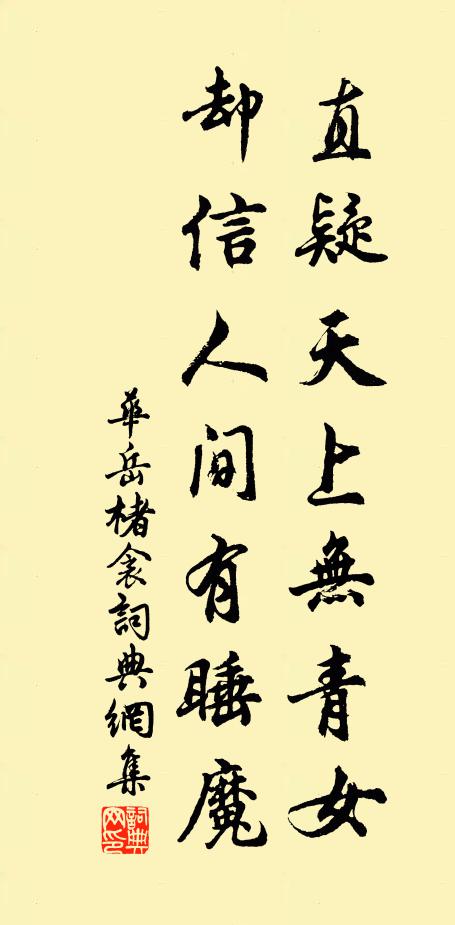 直疑天上無青女
却信人間有睡魔
華岳楮衾詞典網集
詞典網印